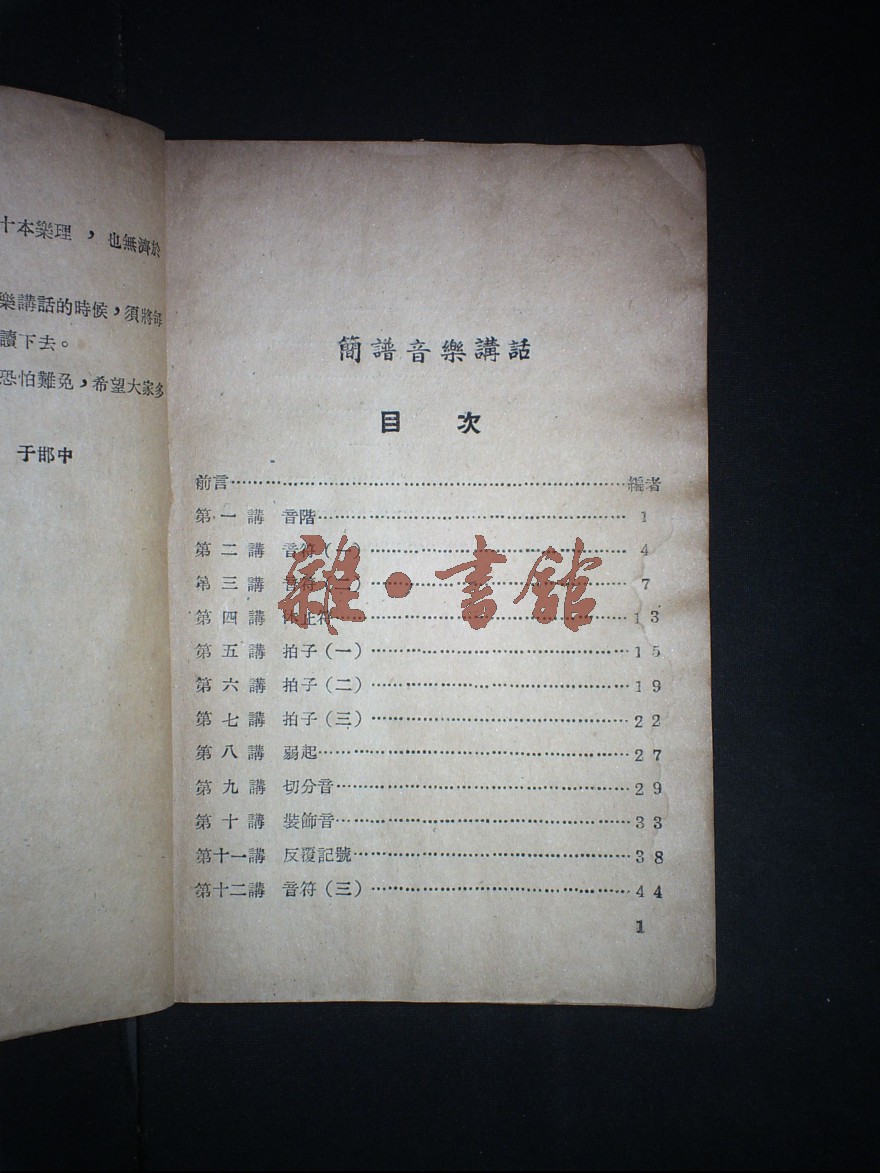 十本樂理，也無濟於
樂講話的時候，須將每
讀下去。
恐怕難免，希望大家多
于邯中
簡譜音樂講話
目次
前言……編者
第一講 音階……1
第二講 音符（一）……4
第三講 音符（二）……7
第四講 休止符……13
第五講 拍子（一）……15
第六講 拍子（二）……19
第七講 拍子（三）……22
第八講 弱起……27
第九講 切分音……29
第十講 裝飾音……33
第十一講 反覆記號……38
第十二講 音符（三）……44
1
雜·書館